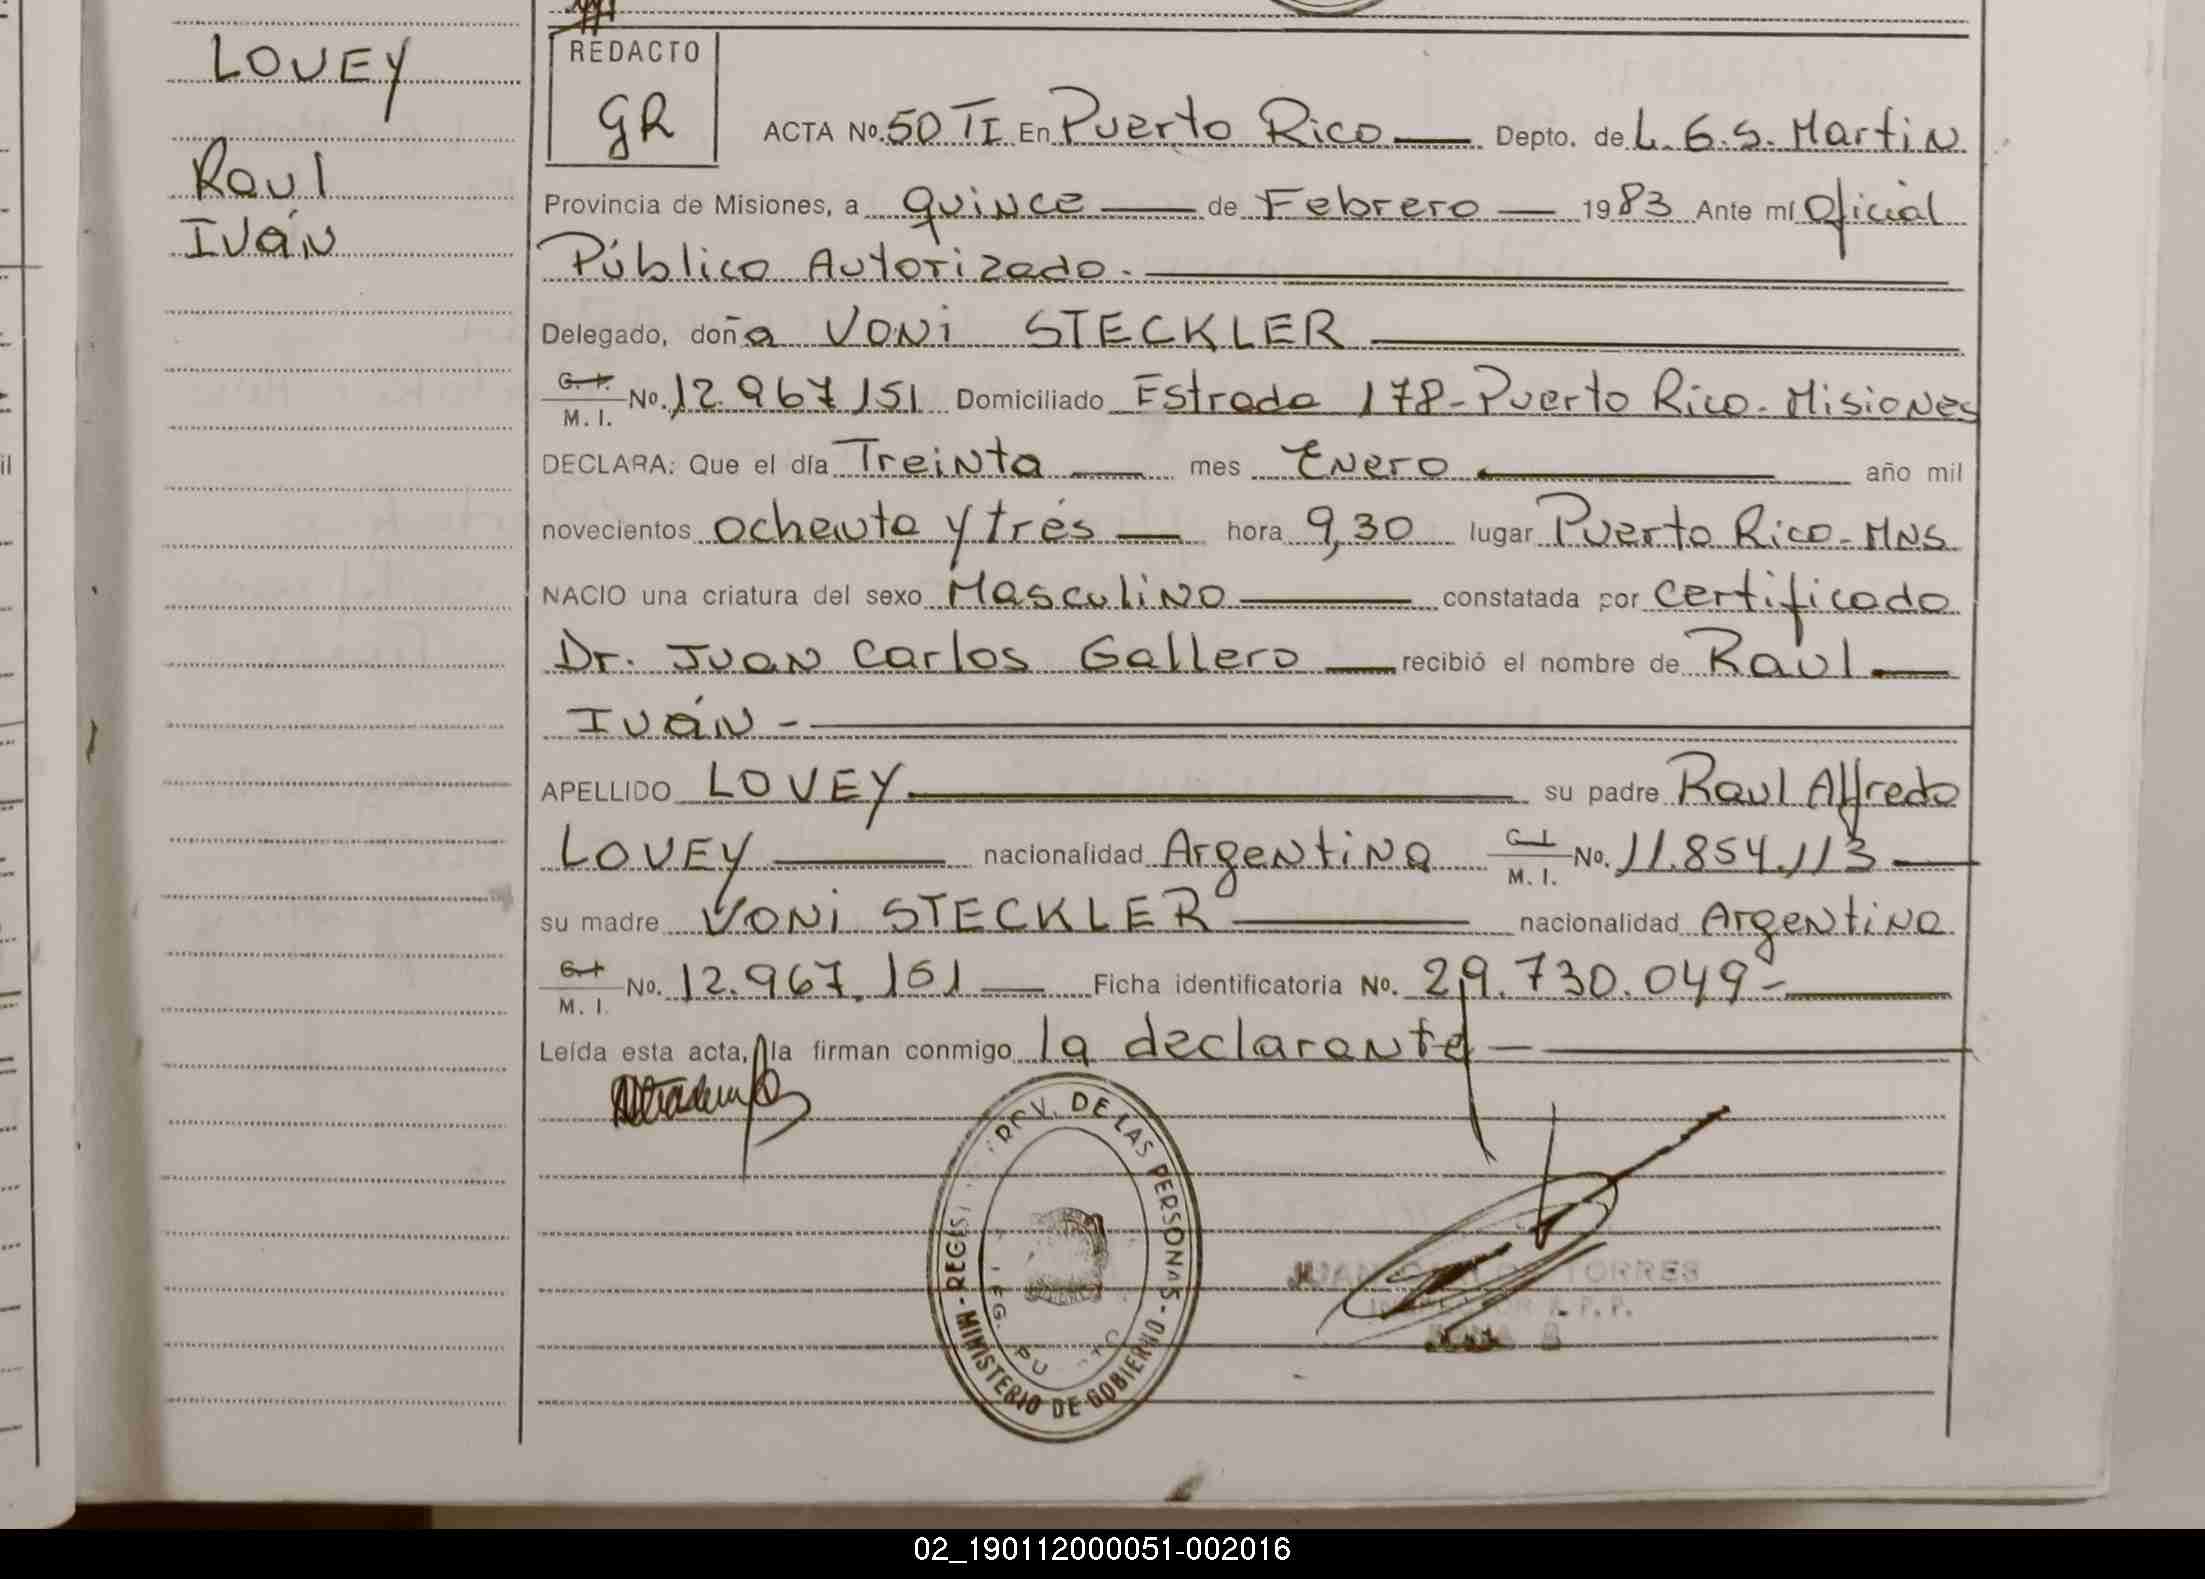 LOVEY
Raul
Iván
REDACTO
GR
ACTA No. 50 TI En Puerto Rico Depto. de L. G. S. Martin
Provincia de Misiones, a quince de Febrero 1983 Ante mí Oficial
Público Autorizado.
Delegado, doña VONI STECKLER
C. I. M. I. No. 12.967151 Domiciliado Estrada 178-Puerto Rico-Misiones
DECLARA: Que el día Treinta mes Enero año mil
novecientos ochenta y trés hora 9,30 lugar Puerto Rico-MNS
NACIO una criatura del sexo Masculino constatada por certificado
Dr. Juan Carlos Gallero recibió el nombre de Raul
Iván -
APELLIDO LOVEY su padre Raul Alfredo
LOVEY nacionalidad Argentina C. I. M. I. No. 11.854.113
su madre VONI STECKLER nacionalidad Argentina
C. I. M. I. No. 12.967.151 Ficha identificatoria No. 29.730.049-
Leída esta acta, la firman conmigo la declarante -
MINISTERIO DE GOBIERNO - REGIS PROV. DE LAS PERSONAS -
TORRES
02_190112000051-002016